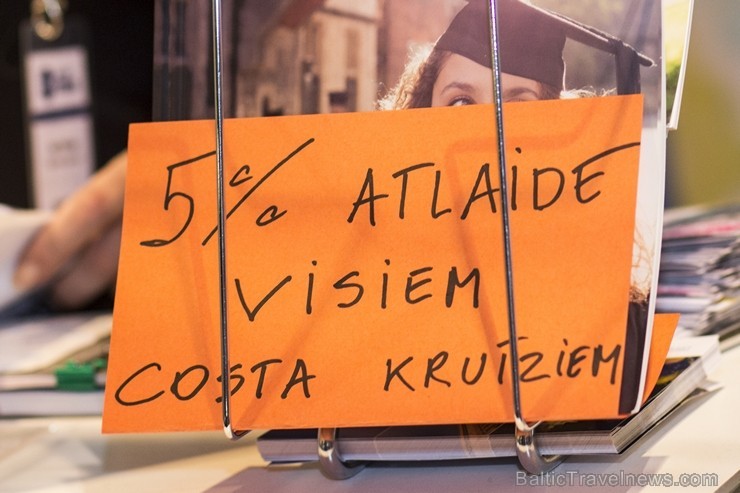 5% ATLAIDE
VISIEM
COSTA KRUĪZIEM
BalticTravelnews.com